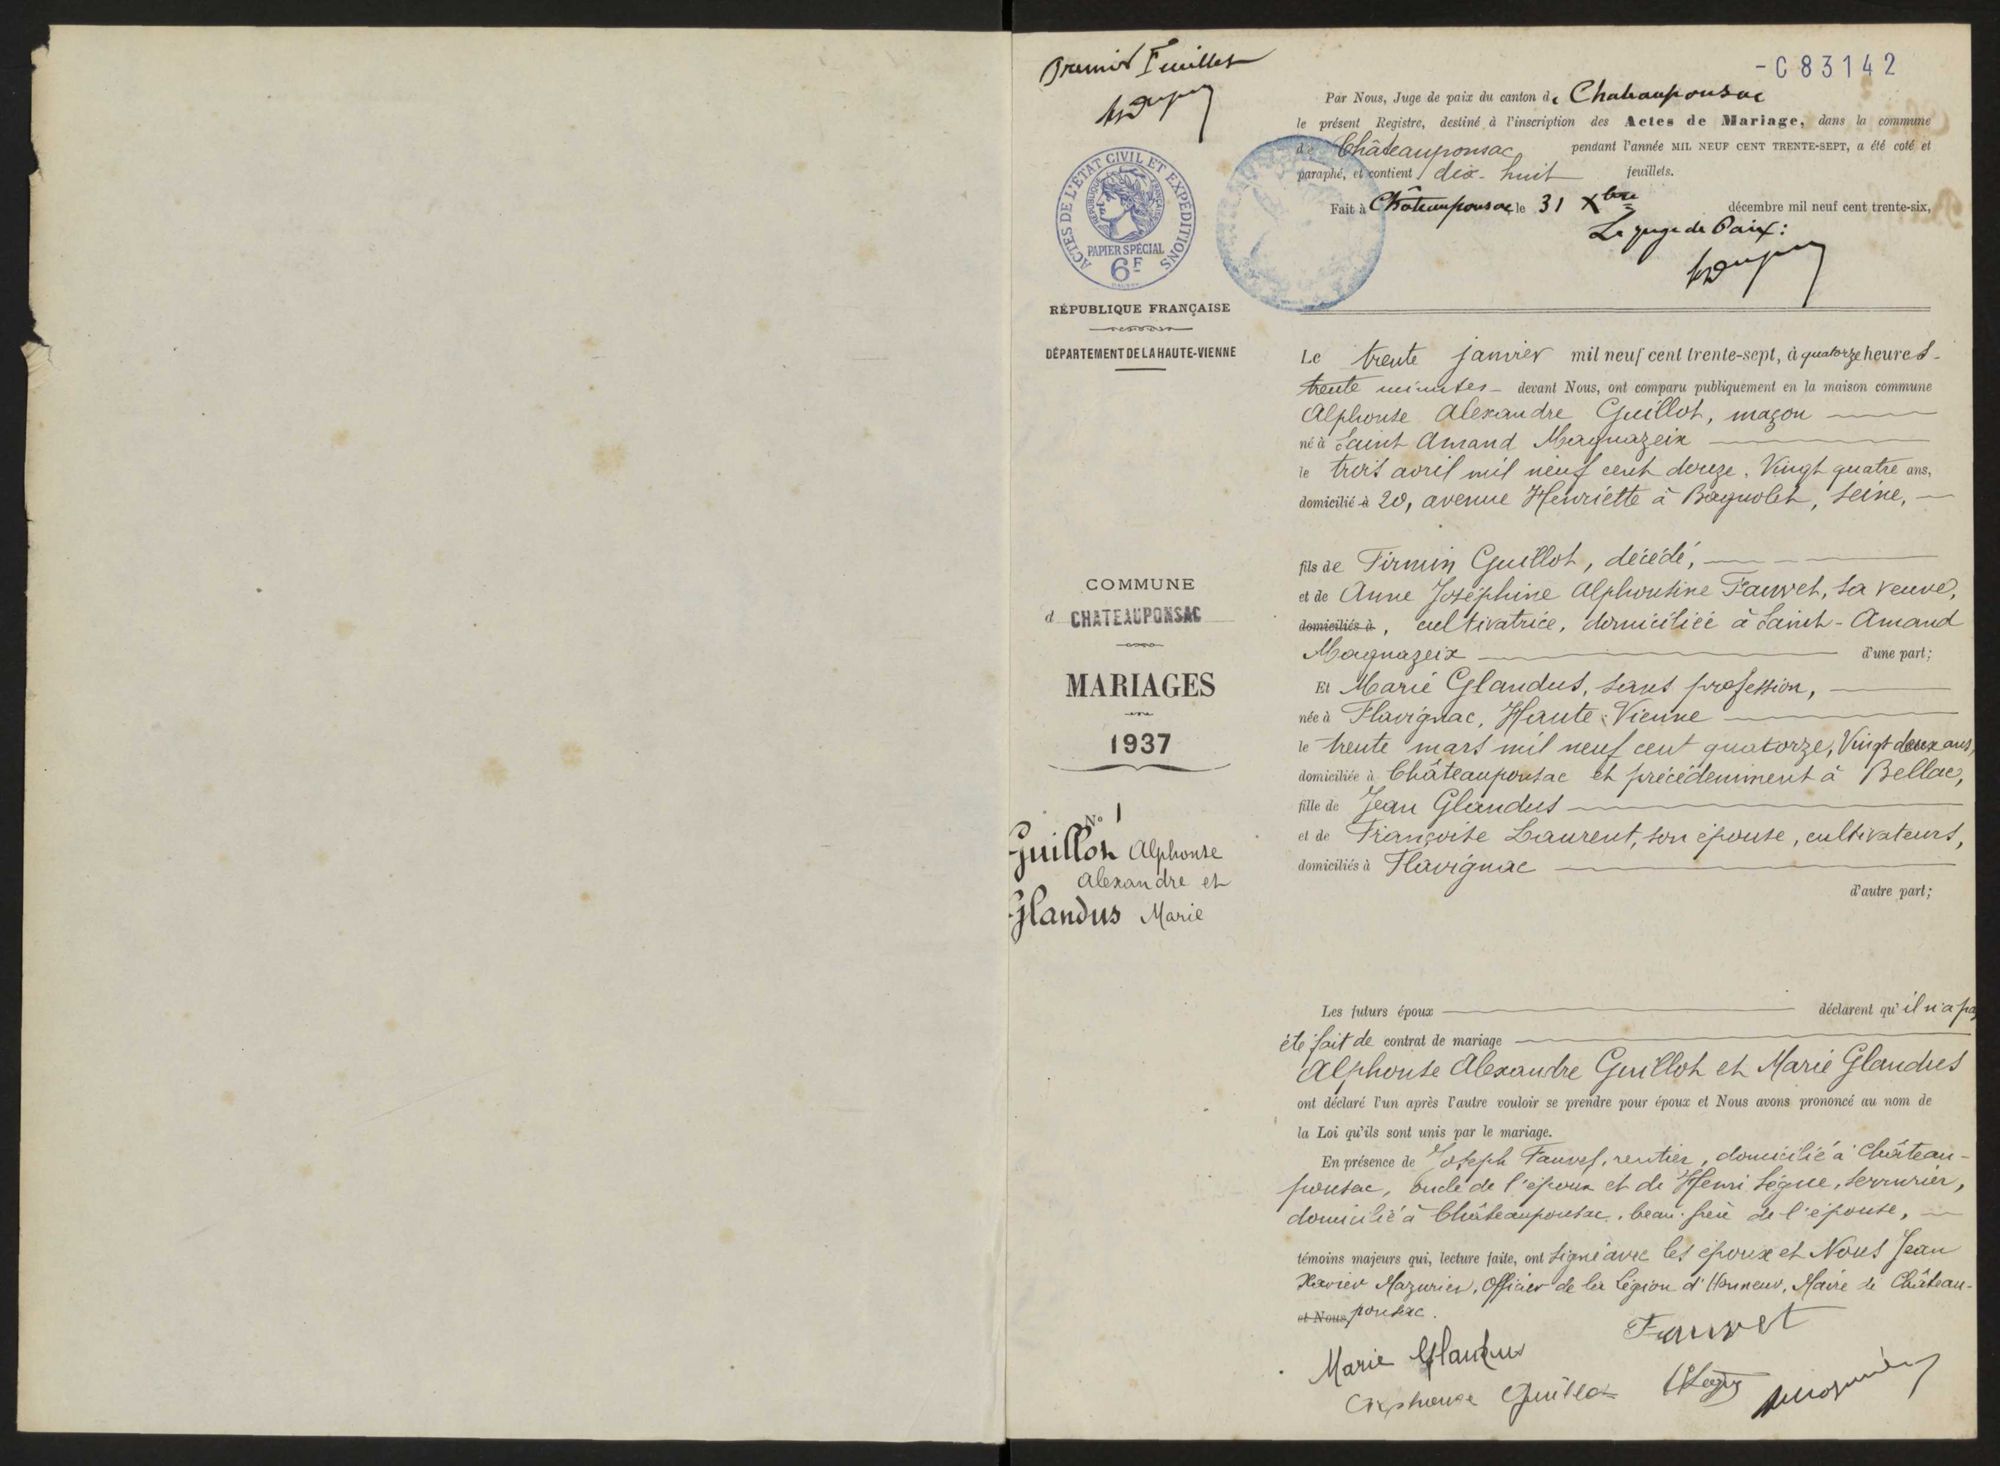 Premier Feuillet
-C83142
Par Nous, Juge de paix du canton de Chateauponsac
le présent Registre, destiné à l'inscription des Actes de Mariage, dans la commune
de Châteauponsac pendant l'année MIL NEUF CENT TRENTE-SEPT, a été coté et
paraphé, et contient dix-huit feuillets.
Fait à Châteauponsac le 31 Xbre décembre mil neuf cent trente-six,
Le juge de Paix:
ACTES DE L'ÉTAT CIVIL ET EXPÉDITIONS
RÉPUBLIQUE FRANÇAISE
PAPIER SPÉCIAL
6F
RÉPUBLIQUE FRANÇAISE
DÉPARTEMENT DE LA HAUTE-VIENNE
COMMUNE
d CHATEAUPONSAC
MARIAGES
1937
N° 1
Guillot Alphonse
Alexandre et
Glandus Marie
Le trente janvier mil neuf cent trente-sept, à quatorze heures
trente minutes devant Nous, ont comparu publiquement en la maison commune
Alphonse Alexandre Guillot, maçon
né à Saint Amand Magnazeix
le trois avril mil neuf cent douze, Vingt quatre ans,
domicilié à 20, avenue Henriette à Bagnolet, Seine,
fils de Firmin Guillot, décédé,
et de Anne Joséphine Alphonsine Fauvet, sa veuve,
domiciliés à, cultivatrice, domiciliée à Saint-Amand
Magnazeix d'une part;
Et Marie Glandus, sans profession,
née à Flavignac, Haute-Vienne
le trente mars mil neuf cent quatorze, Vingt deux ans,
domiciliée à Châteauponsac et précédemment à Bellac,
fille de Jean Glandus
et de Françoise Laurent, son épouse, cultivateurs,
domiciliés à Flavignac
d'autre part;
Les futurs époux déclarent qu'il n'a pas
été fait de contrat de mariage
Alphonse Alexandre Guillot et Marie Glandus
ont déclaré l'un après l'autre vouloir se prendre pour époux et Nous avons prononcé au nom de
la Loi qu'ils sont unis par le mariage.
En présence de Joseph Fauvet, rentier, domicilié à Château-
ponsac, oncle de l'époux et de Henri Ségue, serrurier,
domicilié à Châteauponsac, beau-frère de l'épouse,
témoins majeurs qui, lecture faite, ont signé avec les époux et Nous Jean
Xavier Mazurier, Officier de la Légion d'Honneur, Maire de Château-
et Nous ponsac.
Marie Glandus
Fauvet
Alphonse Guillot